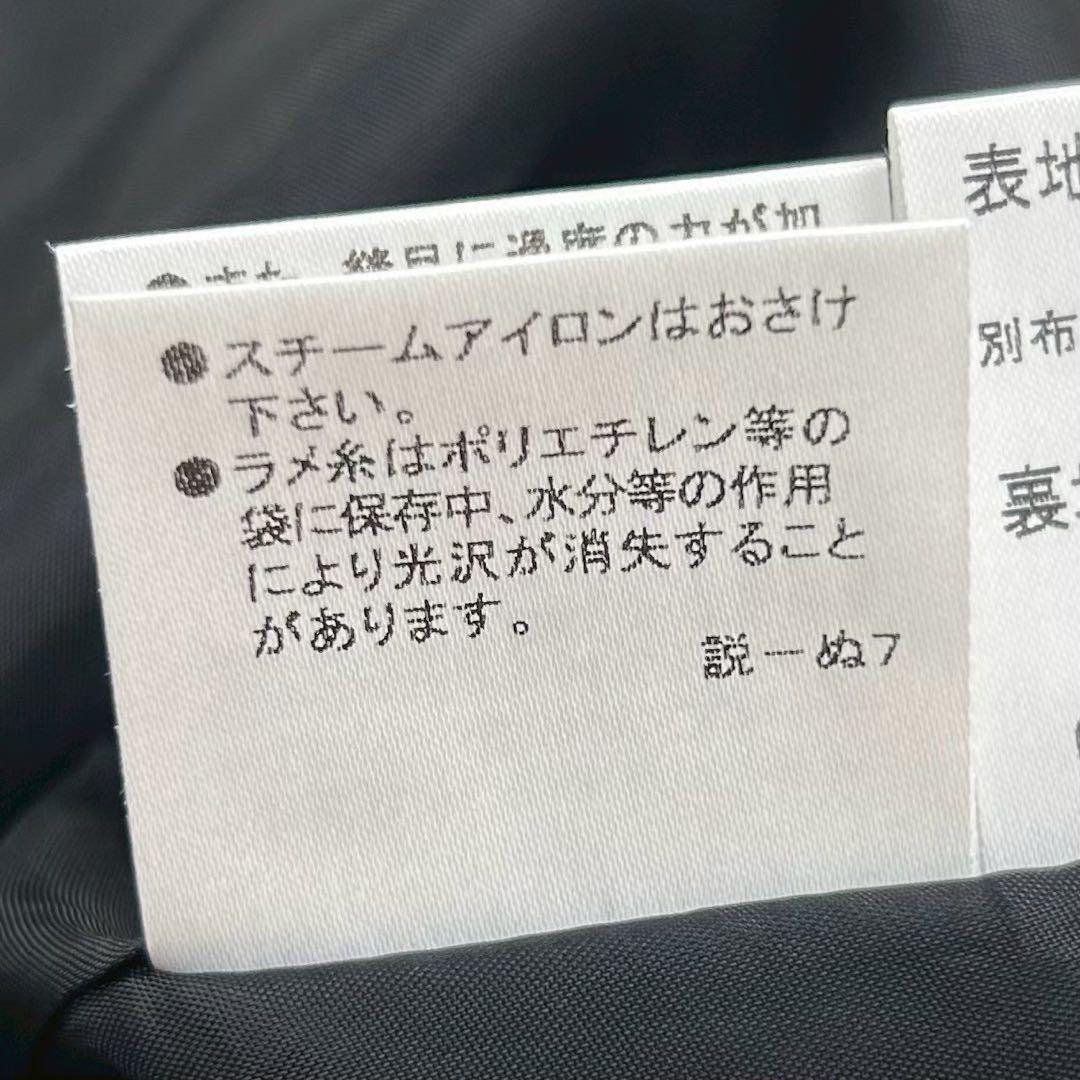 縫目に過度の力が加
●スチームアイロンはおさけ
下さい。
●ラメ糸はポリエチレン等の
袋に保存中、水分等の作用
により光沢が消失すること
があります。
説ーぬ7
表地
別布
裏